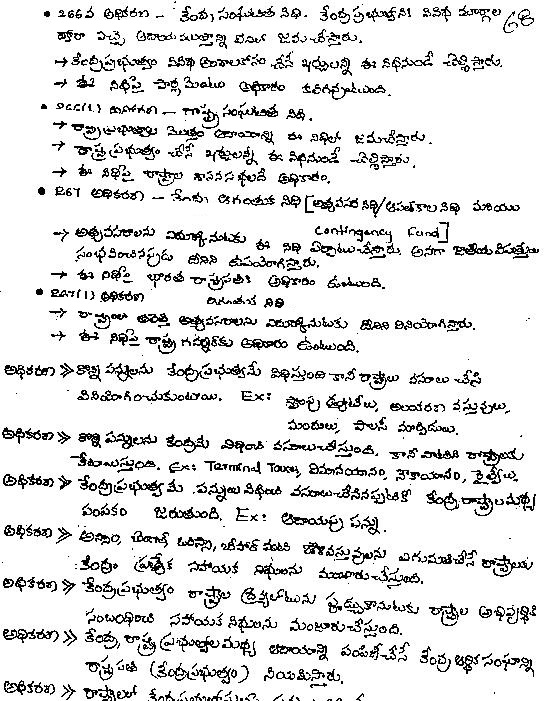 • 266వ అధికరణ - కేంద్ర సంఘటిత నిధి. కేంద్ర ప్రభుత్వానికి వివిధ మార్గాల 68
ద్వారా వచ్చే ఆదాయ మొత్తాన్ని దీనిలో జమచేస్తారు.
→ కేంద్రప్రభుత్వం వివిధ అవసరాలకోసం చేసే ఖర్చులన్నీ ఈ నిధినుండే చెల్లిస్తారు.
→ ఈ నిధిపై పార్లమెంటు అధికారం కలిగివుంటుంది.
• 266(1) అధికరణ - రాష్ట్ర సంఘటిత నిధి.
→ రాష్ట్ర ప్రభుత్వాల మొత్తం ఆదాయాన్ని ఈ నిధిలో జమచేస్తారు.
→ రాష్ట్ర ప్రభుత్వం చేసే ఖర్చులన్నీ ఈ నిధినుండే చెల్లిస్తారు.
→ ఈ నిధిపై రాష్ట్రాల శాసనసభలదే అధికారం.
• 267 అధికరణ - కేంద్ర ఆగంతుక నిధి [అత్యవసర నిధి/ఆపత్కాల నిధి
Contingency Fund]
→ అత్యవసరాలను ఎదుర్కొనుటకు ఈ నిధి ఏర్పాటుచేస్తారు. అనగా జాతీయ విపత్తులు
సంభవించినప్పుడు దీనిని ఉపయోగిస్తారు.
→ ఈ నిధిపై భారత రాష్ట్రపతికి అధికారం ఉంటుంది.
• 267(1) అధికరణ ఆగంతుక నిధి
→ రాష్ట్రంలో అత్యవసరాలను ఎదుర్కొనుటకు దీనిని వినియోగిస్తారు.
→ ఈ నిధిపై రాష్ట్ర గవర్నర్‌కు అధికారం ఉంటుంది.
అధికరణ >> కొన్ని పన్నులను కేంద్రప్రభుత్వమే విధిస్తుంది కానీ రాష్ట్రాలు వసూలు చేసి
వినియోగించుకుంటాయి. Ex: స్టాంపు డ్యూటీలు, అలంకరణ వస్తువులు,
మందులు,
అధికరణ >> కొన్ని పన్నులను కేంద్రమే విధించి వసూలుచేస్తుంది. కానీ వాటిని రాష్ట్రాలకు
కేటాయిస్తుంది. Ex: Terminal Taxes, విమానయానం, నౌకాయానం, రైల్వేలు.
అధికరణ >> కేంద్రప్రభుత్వమే పన్నులు విధించి వసూలుచేసినప్పటికీ కేంద్ర, రాష్ట్రాల మధ్య
పంపకం జరుగుతుంది. Ex: ఆదాయపు పన్ను.
అధికరణ >> అస్సాం, బెంగాల్, ఒరిస్సా, బీహార్ వంటి జౌళివస్తువులను ఎగుమతిచేసే రాష్ట్రాలకు
కేంద్రం ప్రత్యేక సహాయక నిధులను మంజూరుచేస్తుంది.
అధికరణ >> కేంద్రప్రభుత్వం రాష్ట్రాల ద్రవ్యలోటును పూడ్చుకొనుటకు రాష్ట్రాల అభివృద్ధికి
సంబంధించి సహాయక నిధులను మంజూరుచేస్తుంది.
అధికరణ >> కేంద్ర, రాష్ట్ర ప్రభుత్వాల మధ్య ఆదాయాన్ని పంపిణీచేసే కేంద్ర ఆర్థిక సంఘాన్ని
రాష్ట్రపతి (కేంద్రప్రభుత్వం) నియమిస్తారు.
అధికరణ >> రాష్ట్రాలలో